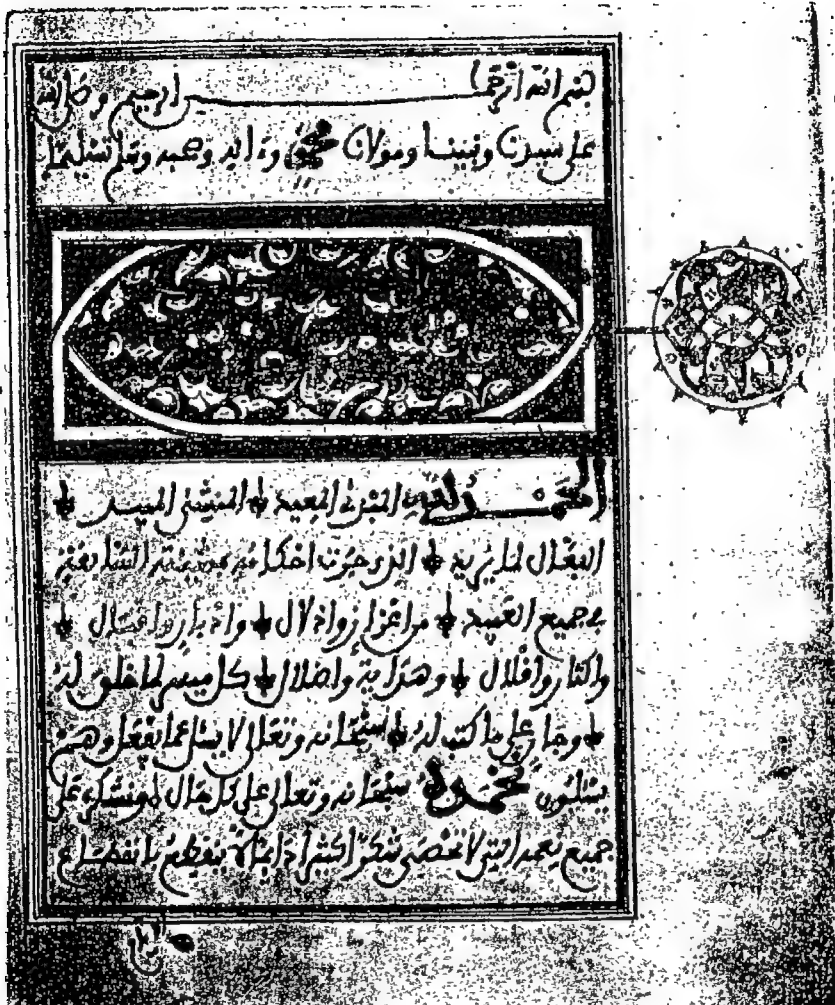 بسم الله الرحمان الرحيم وصلى الله
على سيدنا ونبينا ومولانا محمد وءاله وصحبه وسلم تسليما
الحمد لله المبدئ المعيد المنشئ المبيد
الفعال لما يريد الذي جرت احكامه ومشيئته النافذة
في جميع العبيد من اعزاز واذلال وادبار واقبال
واكثار واقلال وهداية واضلال كل ميسر لما خلق له
وجار على ما كتب له سبحانه وتعالى لا يسئل عما يفعل وهم
يسئلون نحمده سبحانه وتعالى على كل حال ونشكره على
جميع نعمه التي لا تحصى شكرا كثيرا دايما لا ينقطع بانقضاء